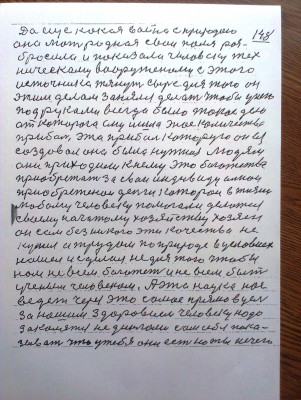 148
Да еще какая война с природою
она мать родная свои поля раз-
бросила и показала человеку тех
ническому вооруженому с этого
источника тянут сырье для того он
этим делом занялся делать чтобы у него
под руками всегда было такое дело
от которого ему имела такое количество
прибыл, эта прибыл которую он
создовал она была нужная людям
они приходили к нему это богатство
приобретать за свои индевидуалной
приобретеной денги которои в жизни
любому человеку помогали делатся
своему начатому хозяйству хозяен
он сам без никого эти качества не
купил а трудом по природе в условиях
нашел и сделал не для того чтобы
ном не всем богатет и не всем быть
ученым человеком. А эта наука нас
ведет через это самое прямо в цел
за нашим здоровием человеку надо
закалятся не днталами сам себя пока-
зыват что у тебя они есть но ты нечего